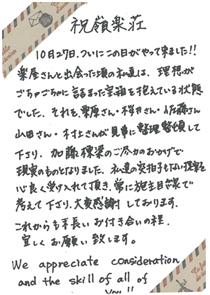 祝嶺楽荘
10月27日、ついにこの日がやって来ました!!
栗原さんと出会った頃の私達は、理想が
ごちゃごちゃに詰まった宝箱を抱えている状態
でした。それを、栗原さん・桜井さん・佐藤さん
山田さん・木村さんが見事に整理整頓して
下さり、加藤様のご尽力のおかげで
現実のものとなりました。私達の突拍子もない提案を
心良く受け入れて頂き、常に施主目線で
考えて下さり、大変感謝しております。
これからも末長いお付き合いの程、
宜しくお願い致します。
We appreciate consideration
and the skill of all of
you!!